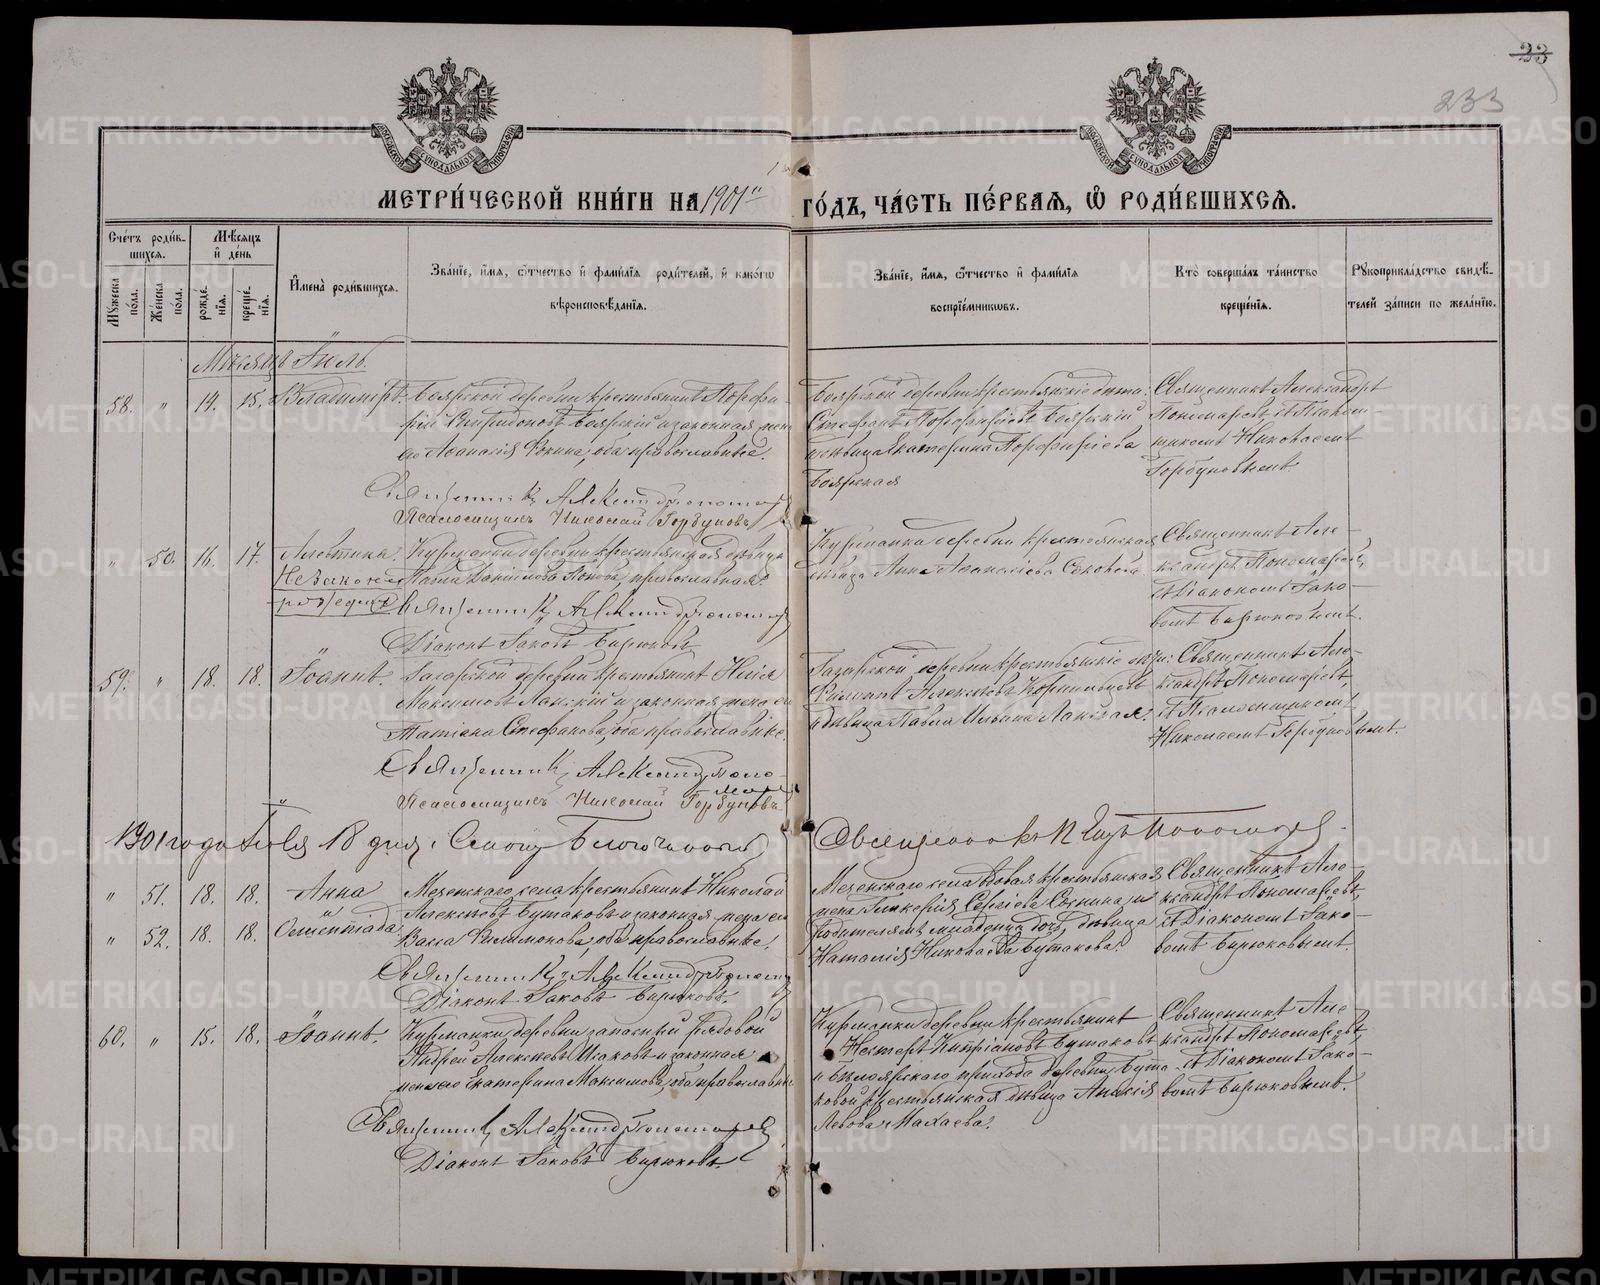 233
МЕТРИ́ЧЕСКОЙ КНИ́ГИ НА 1901й ГО́ДЪ, ЧА́СТЬ ПЕ́РВАѦ, Ѽ РОДИ́ВШИХСѦ.
Сче́тъ роди́в-
шихсѧ.
Мꙋжеска по́ла.
Же́нска по́ла.
Мѣ́сѧцъ
и҆ де́нь
рожде́-
нїѧ.
креще́-
нїѧ.
И҆мена̀ роди́вшихсѧ.
Зва́нїе, и҆́мѧ, ѻ҆́тчество и҆ фами́лїѧ роди́телей, и҆ како́гѡ
вѣроисповѣ́данїѧ.
Зва́нїе, и҆́мѧ, ѻ҆́тчество и҆ фами́лїѧ
воспрїе́мникѡвъ.
Кто̀ соверша́лъ та́инство
креще́нїѧ.
Рꙋкоприкла́дство свидѣ́-
телей за́писи по жела́нїю.
Мѣсяцъ Іюль.
58. " 14. 15. Владиміръ.
Боярской деревни крестьянинъ Порфи-
рій Спиридоновъ Боярскій и законная жена
его Аѳанасія Фокина, оба православные.
Священникъ Александръ Пономаревъ
Псаломщикъ Николай Горбуновъ
Боярской деревни крестьянскіе дѣти:
Стефанъ Порфиріевъ Боярскій
и дѣвица Екатерина Порфиріева
Боярская
Священникъ Александръ
Пономаревъ съ Псалом-
щикомъ Николаемъ
Горбуновымъ
" 50. 16. 17. Алевтина.
Незаконно-
рожденная
Курманки деревни крестьянская дѣвица
Данилова Попова, православная.
Священникъ Александръ Пономаревъ
Діаконъ Іаковъ Бирюковъ
Курманки деревни крестьянская
дѣвица Анна Аѳанасіева Соковова
Священникъ Але-
ксандръ Пономаревъ,
съ Діакономъ Іако-
вомъ Бирюковымъ.
59. " 18. 18. Іоаннъ.
Гагарской деревни крестьянинъ Илія
Максимовъ Ланскій и законная жена его
Татіана Стефанова, оба православные.
Священникъ Александръ Поно-
маревъ
Псаломщикъ Николай Горбуновъ
Гагарской деревни крестьянскіе дѣти:
Филиппъ Алексѣевъ
и дѣвица Павла Ильина Ланская.
Священникъ Але-
ксандръ Пономаревъ,
съ Псаломщикомъ
Николаемъ Горбуновымъ.
1901 года Іюля 18 дня.
" 51. 18. 18. Анна
" 52. 18. 18. Олимпіада
Мезенскаго села крестьянинъ Николай
Алексѣевъ Бутаковъ и законная жена его
Васса Филимонова, оба православные.
Священникъ Александръ Пономаревъ
Діаконъ Іаковъ Бирюковъ.
Мезенскаго села вдовая крестьянская
жена Гликерія Сергіева Соснина, и
родителямъ младенца дочь, дѣвица
Наталія Николаева Бутакова.
Священникъ Але-
ксандръ Пономаревъ,
съ Діакономъ Іако-
вомъ Бирюковымъ.
60. " 15. 18. Іоаннъ.
Курманки деревни запасный рядовой
Андрей Алексѣевъ Исаковъ и законная
жена его Екатерина Максимова, оба православные
Священникъ Александръ Пономаревъ
Діаконъ Іаковъ Бирюковъ.
Курманки деревни крестьянинъ
Нестеръ Кипріановъ Бутаковъ
и Бѣлоярскаго прихода деревни Бута-
ковой крестьянская дѣвица Анисія
Левова Малаева.
Священникъ Але-
ксандръ Пономаревъ,
съ Діакономъ Іако-
вомъ Бирюковымъ.
METRIKI.GASO-URAL.RU